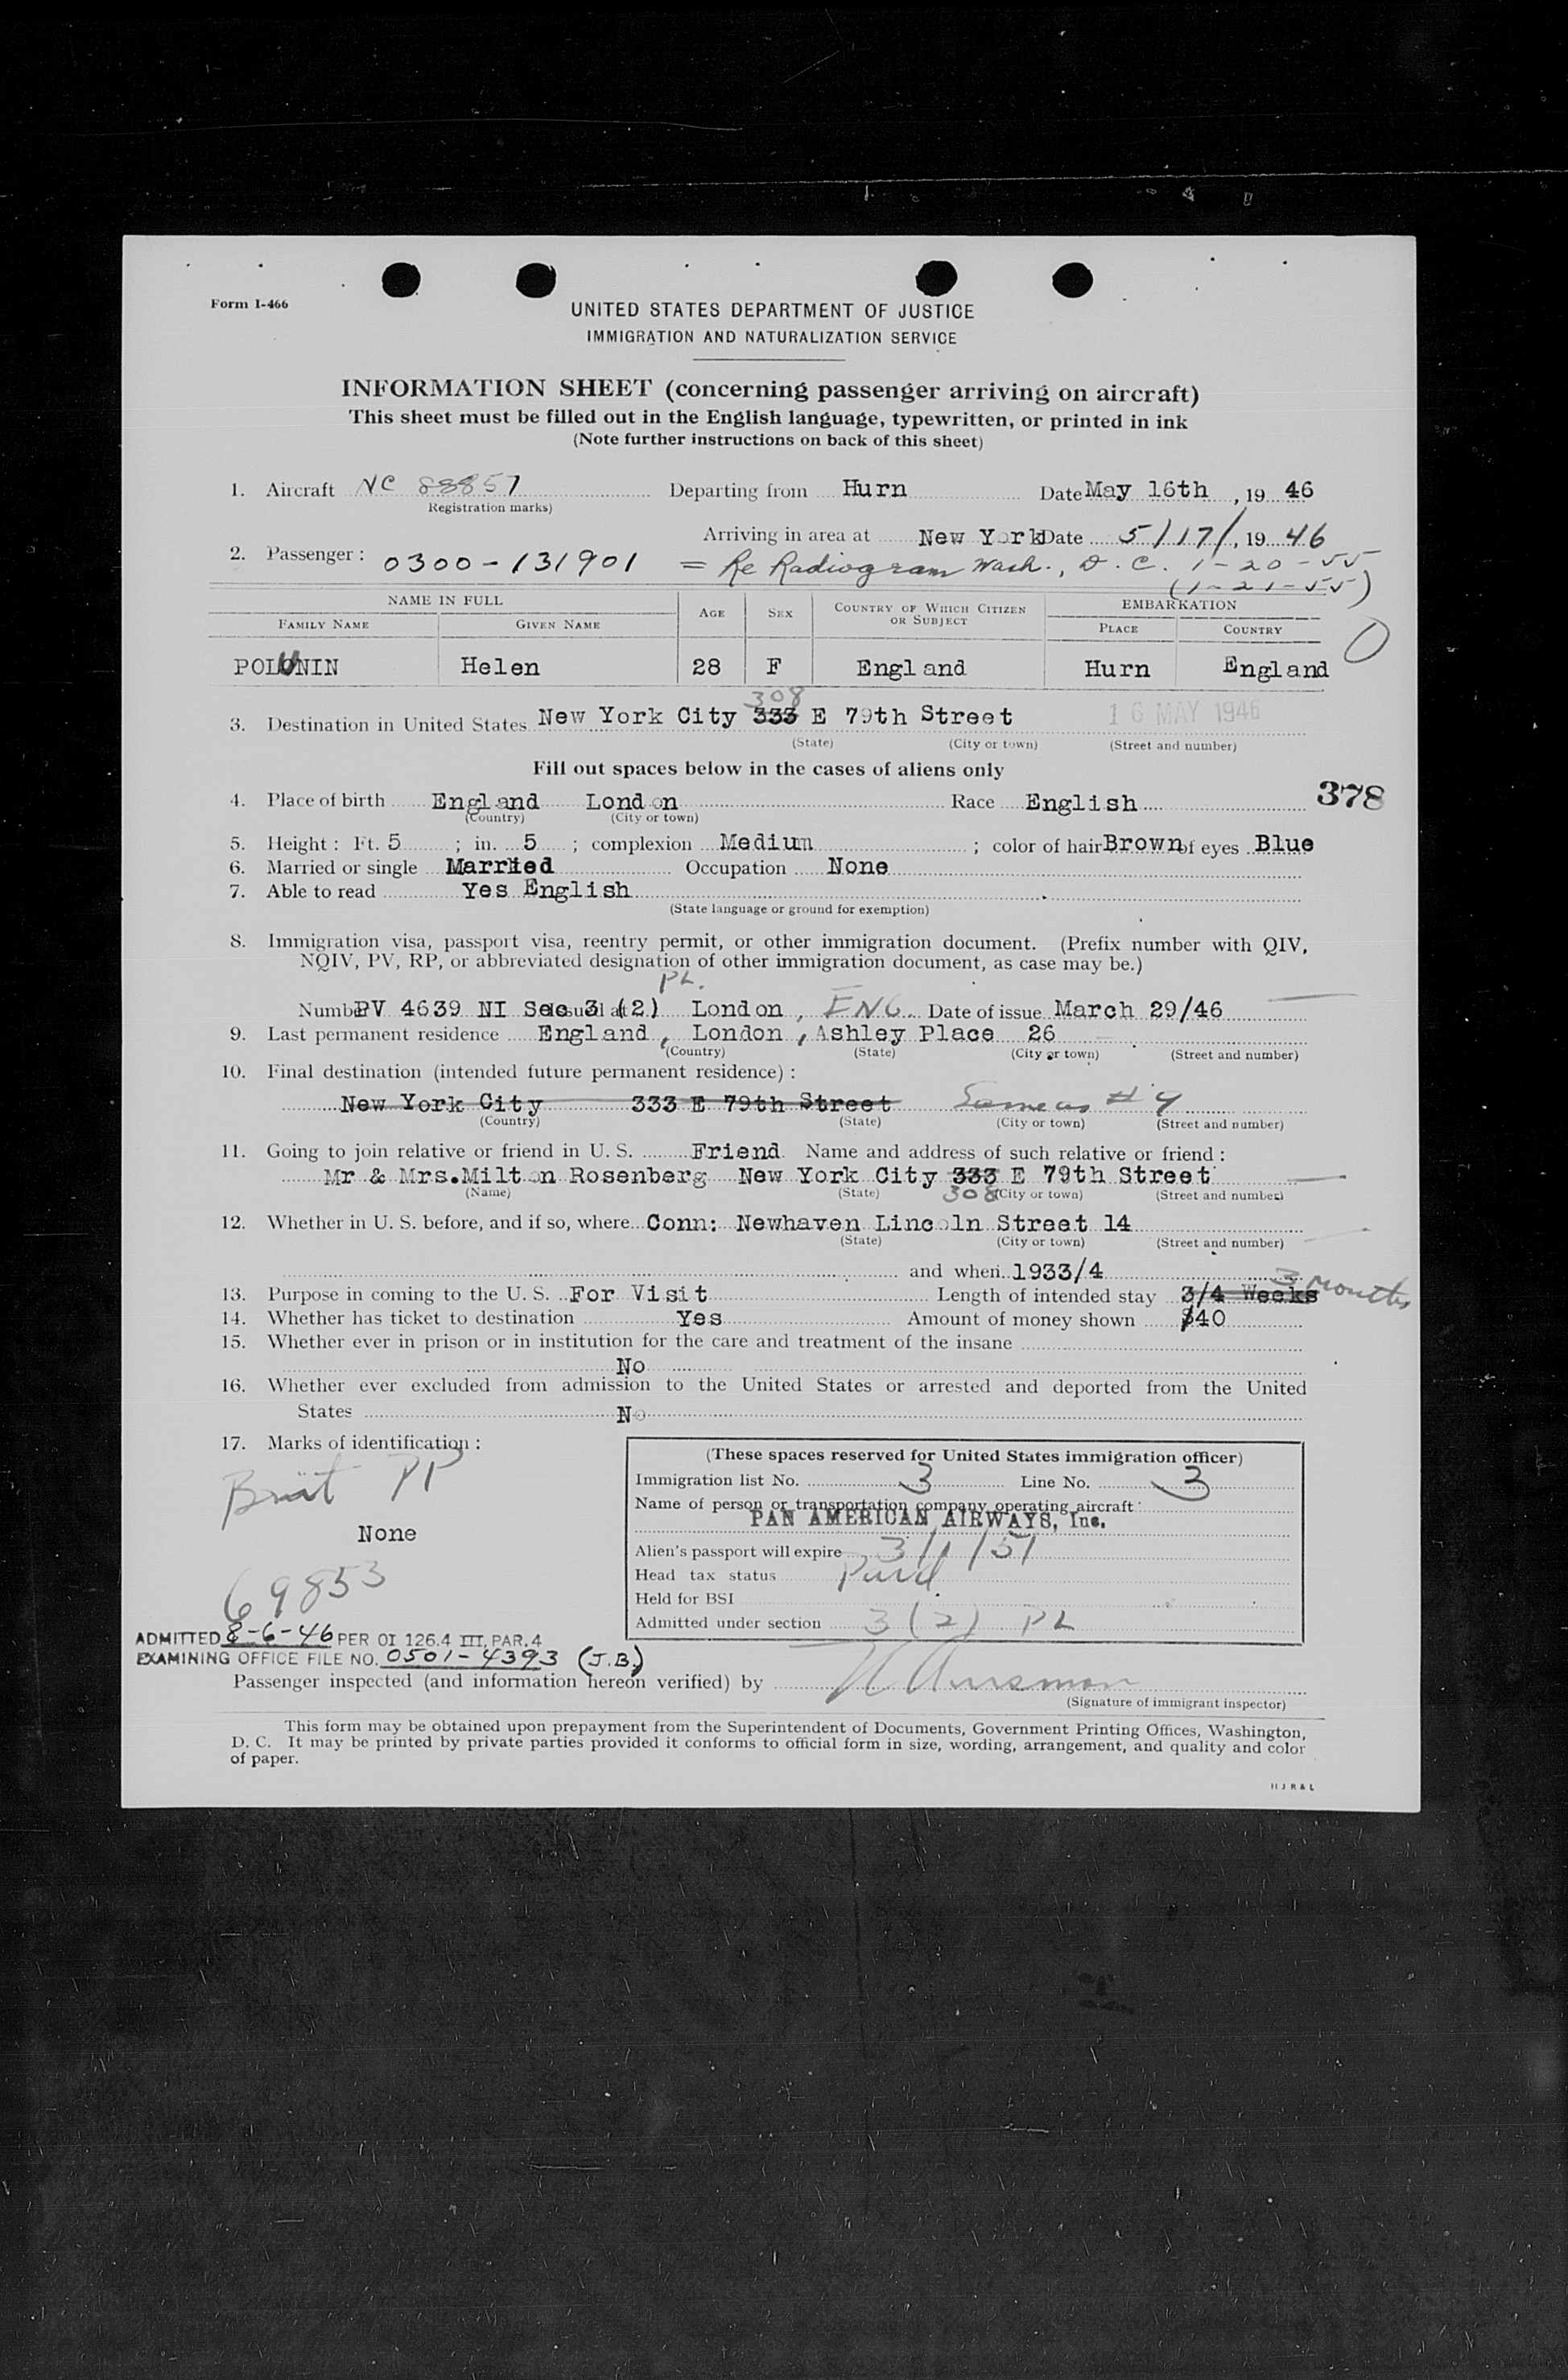 Form I-466
UNITED STATES DEPARTMENT OF JUSTICE
IMMIGRATION AND NATURALIZATION SERVICE
INFORMATION SHEET (concerning passenger arriving on aircraft)
This sheet must be filled out in the English language, typewritten, or printed in ink
(Note further instructions on back of this sheet)
1. Aircraft NC 88857 Departing from Hurn Date May 16th, 19 46
(Registration marks)
Arriving in area at New York Date 5/17/, 19 46
2. Passenger: 0300-131901 = Re Radiogram Wash., D.C. 1-20-55
(1-21-55)
NAME IN FULL AGE SEX COUNTRY OF WHICH CITIZEN OR SUBJECT EMBARKATION
FAMILY NAME GIVEN NAME PLACE COUNTRY
POLUNIN Helen 28 F England Hurn England
308
3. Destination in United States New York City 333 E 79th Street 16 MAY 1946
(State) (City or town) (Street and number)
Fill out spaces below in the cases of aliens only
4. Place of birth England London Race English 378
(Country) (City or town)
5. Height: Ft. 5; in. 5; complexion Medium; color of hair Brown of eyes Blue
6. Married or single Married Occupation None
7. Able to read Yes English
(State language or ground for exemption)
8. Immigration visa, passport visa, reentry permit, or other immigration document. (Prefix number with QIV,
NQIV, PV, RP, or abbreviated designation of other immigration document, as case may be.)
PL.
Number PV 4639 NI Sec 3 (2) Issued at London, ENG. Date of issue March 29/46
9. Last permanent residence England, London, Ashley Place 26
(Country) (State) (City or town) (Street and number)
10. Final destination (intended future permanent residence):
New York City 333 E 79th Street Same as #9
(Country) (State) (City or town) (Street and number)
11. Going to join relative or friend in U. S. Friend Name and address of such relative or friend:
Mr & Mrs. Milton Rosenberg New York City 333 E 79th Street
(Name) (State) 308 (City or town) (Street and number)
12. Whether in U. S. before, and if so, where Conn: Newhaven Lincoln Street 14
(State) (City or town) (Street and number)
and when 1933/4
3 months
13. Purpose in coming to the U. S. For Visit Length of intended stay 3/4 Weeks
14. Whether has ticket to destination Yes Amount of money shown $40
15. Whether ever in prison or in institution for the care and treatment of the insane
No
16. Whether ever excluded from admission to the United States or arrested and deported from the United
States No
17. Marks of identification:
Brit PP
None
69853
(These spaces reserved for United States immigration officer)
Immigration list No. 3 Line No. 3
Name of person or transportation company operating aircraft
PAN AMERICAN AIRWAYS, Inc.
Alien's passport will expire 3/1/51
Head tax status Paid
Held for BSI
Admitted under section 3(2) PL
ADMITTED 8-6-46 PER OI 126.4 III, PAR. 4
EXAMINING OFFICE FILE NO. 0501-4393 (J.B.)
Passenger inspected (and information hereon verified) by
(Signature of immigrant inspector)
This form may be obtained upon prepayment from the Superintendent of Documents, Government Printing Offices, Washington,
D. C. It may be printed by private parties provided it conforms to official form in size, wording, arrangement, and quality and color
of paper.
H J R & L